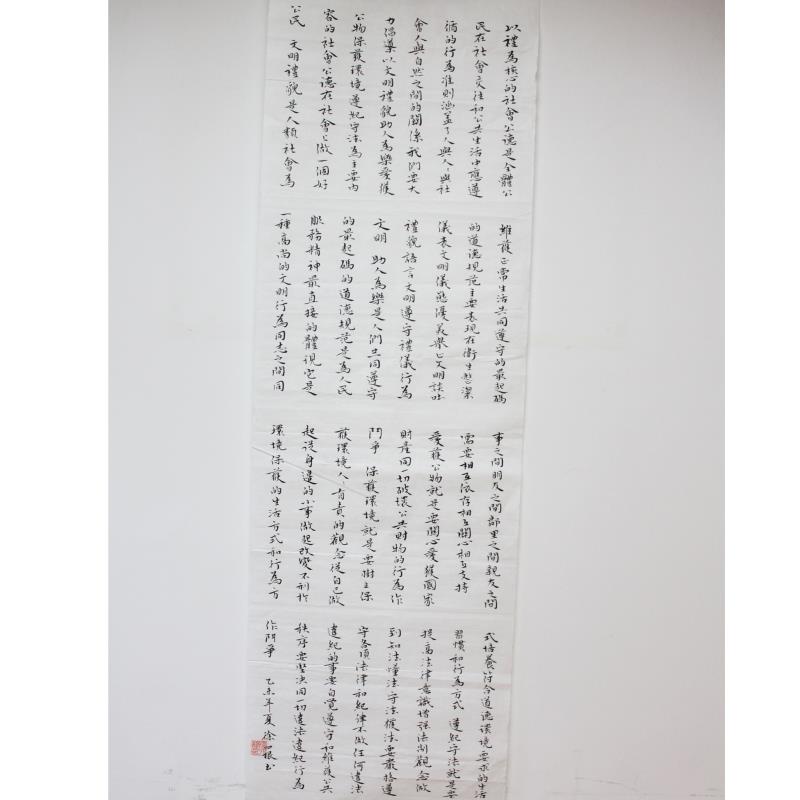 以禮為核心的社會公德是全體公
民在社會交往和公共生活中應遵
循的行為准則涵盖了人與人人與社
會人與自然之間的關係我們要大
力倡導以文明禮貌助人為樂愛護
公物保護環境遵紀守法為主要内
容的社會公德在社會上做一個好
公民 文明禮貌是人類社會為
維護正常生活共同遵守的最起碼
的道德規范主要表現在衛生整潔
儀表文明儀態優美舉止文明談吐
禮貌語言文明遵守禮儀行為
文明 助人為樂是人們共同遵守
的最起碼的道德規范是為人民
服務精神最直接的體現它是
一種高尚的文明行為同志之間同
事之間朋友之間鄰里之間親友之間
需要相互依存相互關心相互支持
愛護公物就是要關心愛護國家
財產同一切破壞公共財物的行為作
鬥爭 保護環境就是要樹立保
護環境人人有責的觀念從自己做
起從身邊的小事做起改變不利於
環境保護的生活方式和行為方
式培養符合道德環境要求的生活
習慣和行為方式 遵紀守法就是要
提高法律意識增强法制觀念做
到知法懂法守法護法要嚴格遵
守各項法律和紀律不做任何違法
違紀的事要自覺遵守和維護公共
秩序要堅决同一切違法違紀行為
作鬥爭 乙未年夏徐 根书